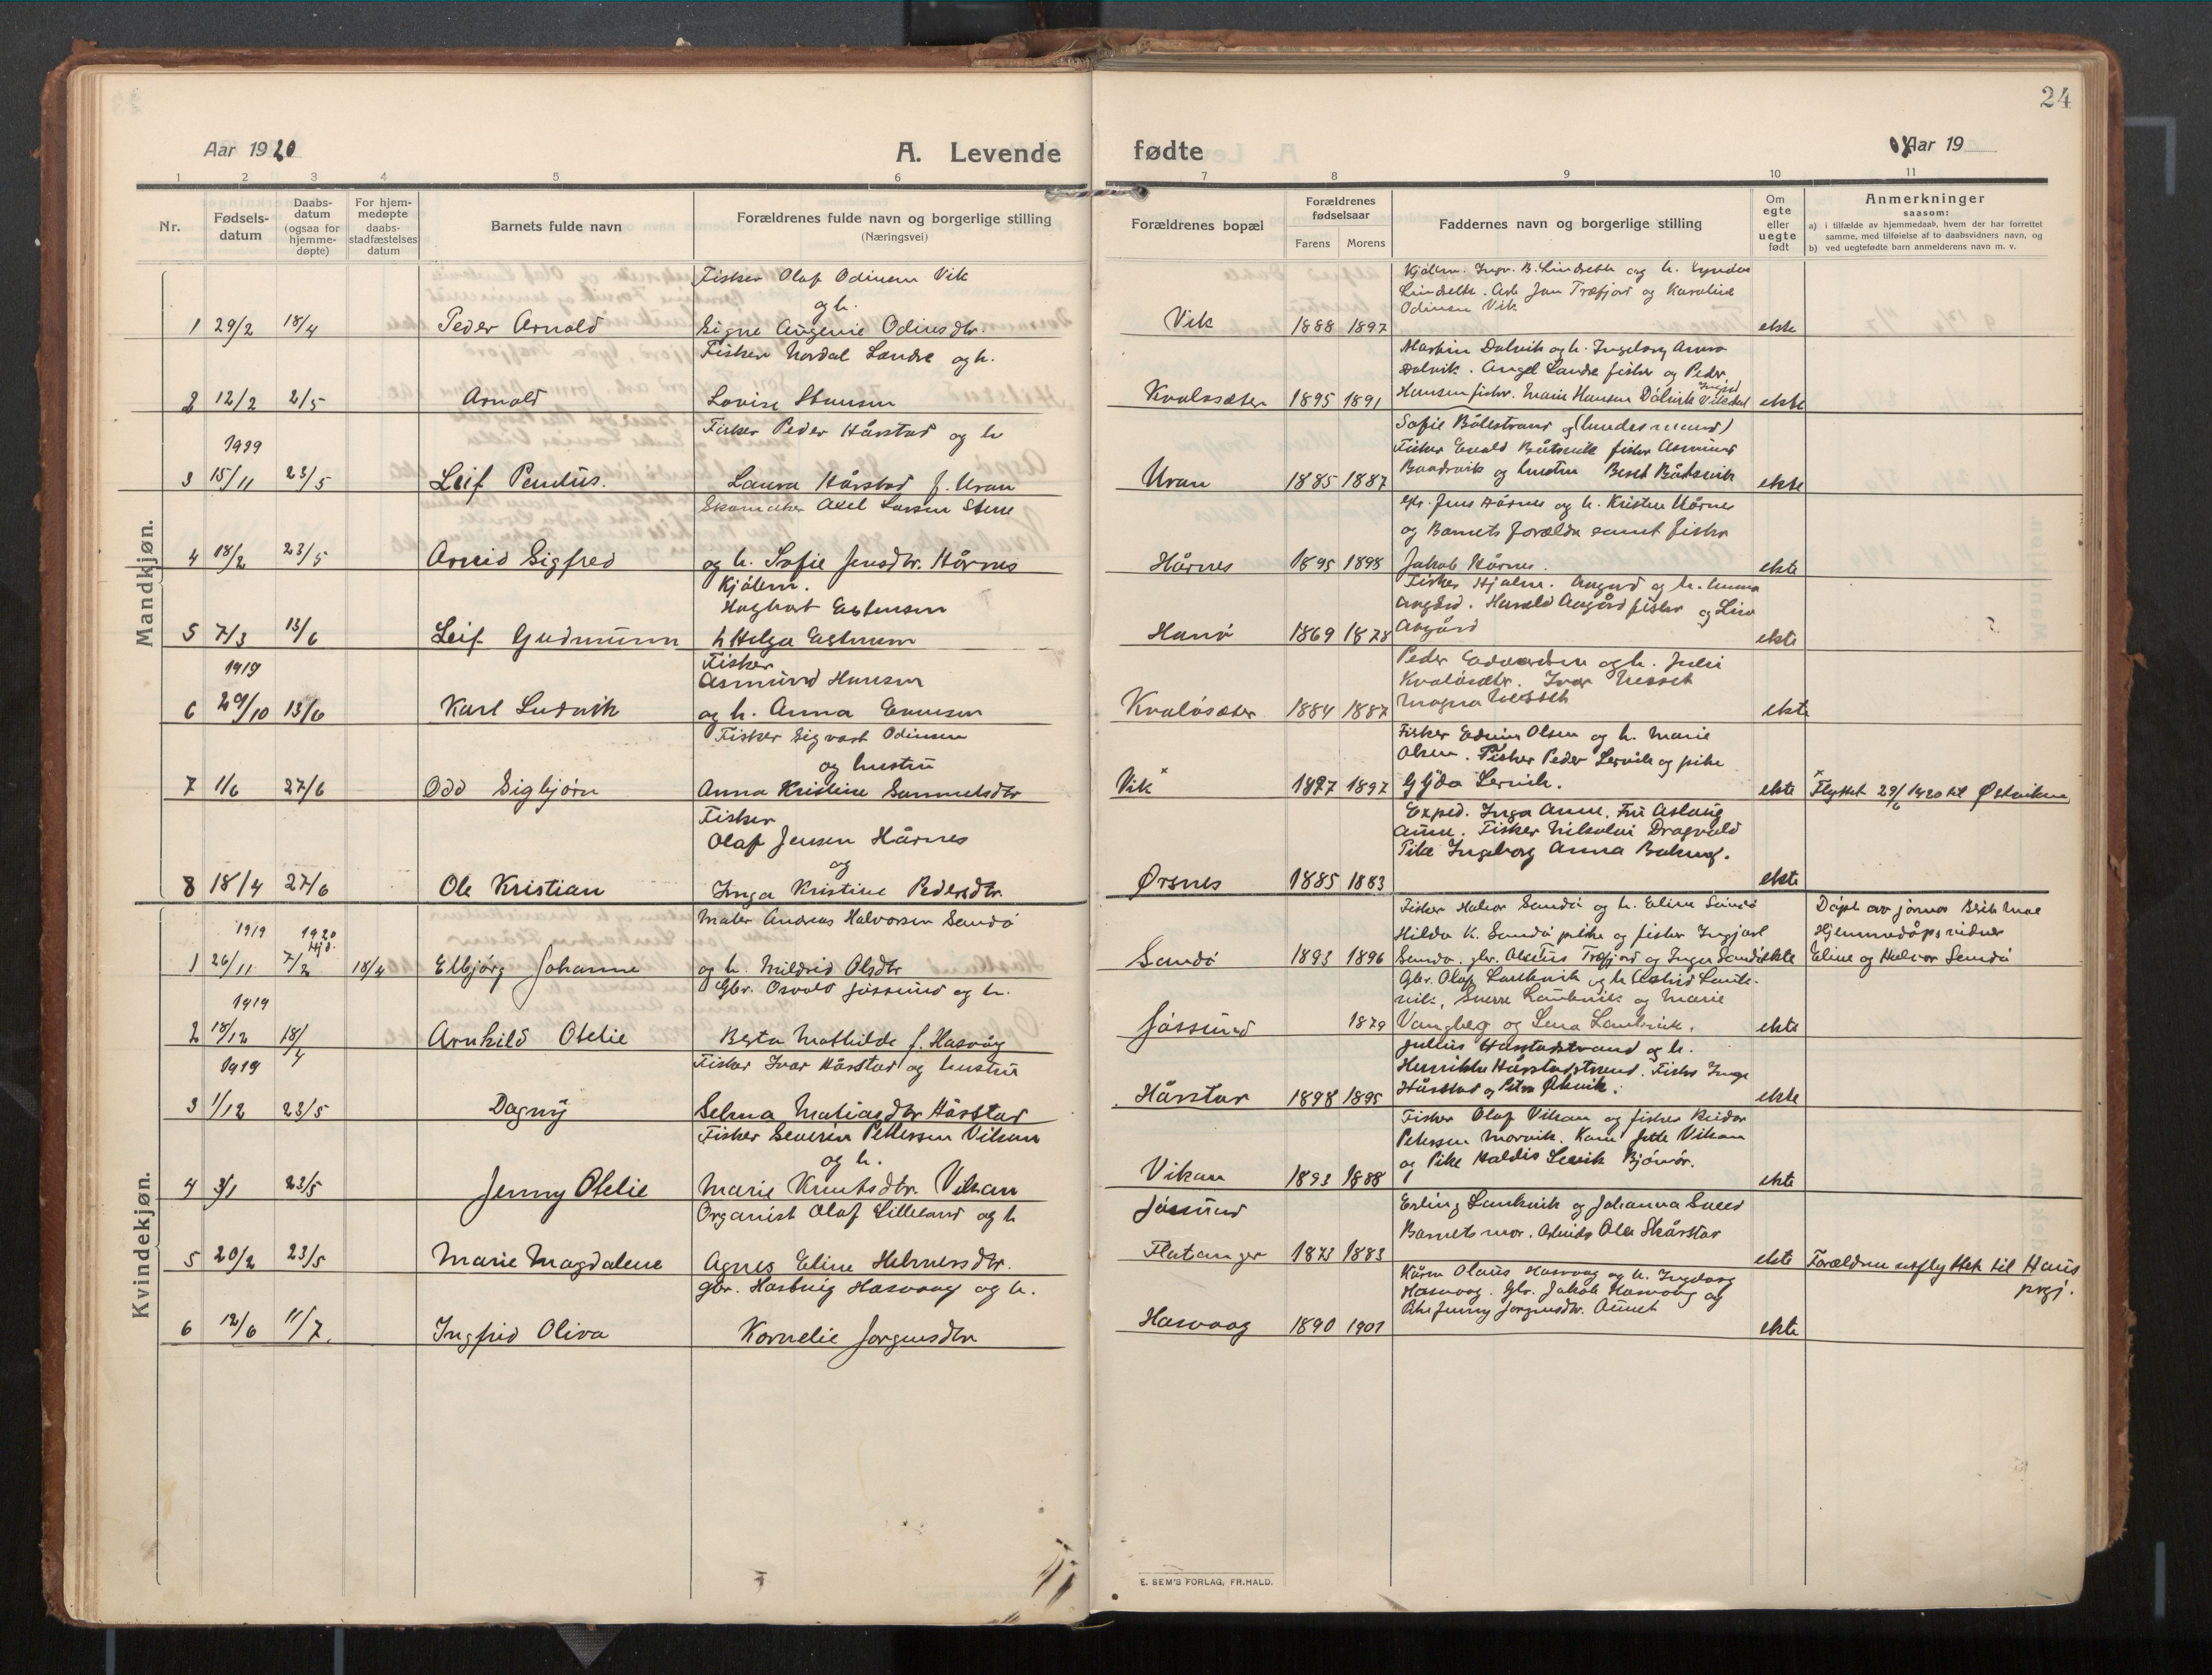 24
Aar 1920
A. Levende fødte
Aar 19
1 2 3 4 5 6 7 8 9 10 11
Nr.
Fødselsdatum
Daabsdatum (ogsaa for hjemmedøpte)
For hjemmedøpte daabsstadfæstelses datum
Barnets fulde navn
Forældrenes fulde navn og borgerlige stilling
(Næringsvei)
Forældrenes bopæl
Forældrenes fødselsaar
Farens Morens
Faddernes navn og borgerlige stilling
Om egte eller uegte født
Anmerkninger
saasom:
a) i tilfælde av hjemmedaab, hvem der har forrettet samme, med tilføielse af to daabsvidners navn, og
b) ved uegtefødte barn anmelderens navn m. v.
Mandkjøn.
Fisker Olaf Odinsen Vik
og h.
1 29/2 18/4 Peder Arnold Signe Augenie Odinsdtr. Vik 1888 1897 ekte
Lindseth. Arb. Jon Træfjord og Karoline
Odinsen Vik
Fisker Nordal Landre og h.
2 12/2 2/5 Arnold Lovise Kvaløsæter 1895 1891 ekte
Martin Dalvik og h. Ingeborg Anna
Dalvik. Angel Landre fisker og Peder
Hansen fisker. Marie Hansen Dalvik
1919
Fisker Peder Hårstad og h
3 15/11 23/5 Leif Pentus. Laura Hårstad f. Uran Uran 1885 1887 ekte
Fisker Båtsvik fisker Asmund
og hustru Båtsvik
Skomaker Axel Larsen Stene
4 18/2 23/5 Arvid Sigfred og h. Sofie Jensdtr. Hårnes Hårnes 1895 1898 ekte
Jens Hårnes og h. Kristine Hårnes
og Barnets forældre samt fisker
Jakob Hårnes.
Kjøbm.
Hagbart Estensen
5 7/3 13/6 Leif Gudmunn h Helga Estensen 1869 1878 ekte
Harald Aagård fisker og
Aagård
1919
Fisker
Asmund Hansen
6 29/10 13/6 Karl Ludvik og h. Anna Kvaløsæter 1884 1887 ekte
Peder Edvardsen og h. Julie
Kvaløsætr. Ivar Nesset
Magna Nesset
Fisker Sigvart Odinsen
og hustru
7 1/6 27/6 Odd Sigbjørn Anna Kristine Samuelsdtr Vik 1897 1897 ekte
Fisker Edvin Olsen og h. Marie
Olsen. Fisker Peder Lervik og pike
Gyda Lervik.
Flyttet 29/6 1920 til
Fisker
Olaf Jensen Hårnes
og
8 18/4 27/6 Ole Kristian Inga Kristine Pedersdtr. Ørsnes 1885 1883 ekte
Exped. Inga Aune, Fru Aslaug
Aune. Fisker Nikolai Dragvold
Pike Ingeborg Anna
Kvindekjøn.
1919 1920 Hjd.
Maler Andreas Halvorsen Sandø
1 26/11 7/2 18/4 Elbjørg Johanne og h. Mildrid Olsdtr Sandø 1893 1896 ekte
Fisker Halvor Sandø og h. Eline Sandø
Hilda K. Sandø pike og fisker Ingjarl
Sandø. gbr. Træfjord og Inga Sandø
Døpt av jormor
Hjemmedåpsvidner
Eline og Halvor Sandø
1919
Gbr. Osvald Jøssund og h.
2 18/12 18/4 Arnhild Otelie Berta Mathilde f. Hasvåg Jøssund 1879 ekte
Gbr. Olaf Lauknvik og h
Sverre Lauknvik og Marie
Vangberg og Lena Lauknvik.
1919
Fisker Ivar Hårstad og hustru
3 1/12 23/5 Dagny Selma Matiasdtr Hårstad Hårstad 1898 1895 ekte
Julius Hårstadstrand og h.
Henrikke Hårstadstrand. Fisker Inge
Hårstad og Petra
Fisker Severin Pettersen Vikan
og h.
4 3/1 23/5 Jenny Otelie Marie Knutsdtr. Vikan Vikan 1893 1888 ekte
Fisker Olaf Vikan og fisker Reidar
Petersen Morvik. Kone Jette Vikan
og Pike Haldis Lervik Bjørør.
Organist Olaf Lilleland og h
5 20/2 23/5 Marie Magdalene Agnes Eline Helmersdtr. Jøssund Flatanger 1873 1883 ekte
Erling Lauknvik og Johanna
Barnets mor. Ola Hårstad
Forældrene utflyttet til Haus
prgj.
Gbr. Hartvig Hasvaag og h.
6 12/6 11/7. Ingfrid Oliva Kornelie Jørgensdtr Hasvaag 1890 1901 ekte
Olaus Hasvaag og h. Ingeborg
Hasvaag. Gbr. Jakob Hasvaag og
Jenny Jørgensdtr. Aunet
E. SEM'S FORLAG, FR.HALD.